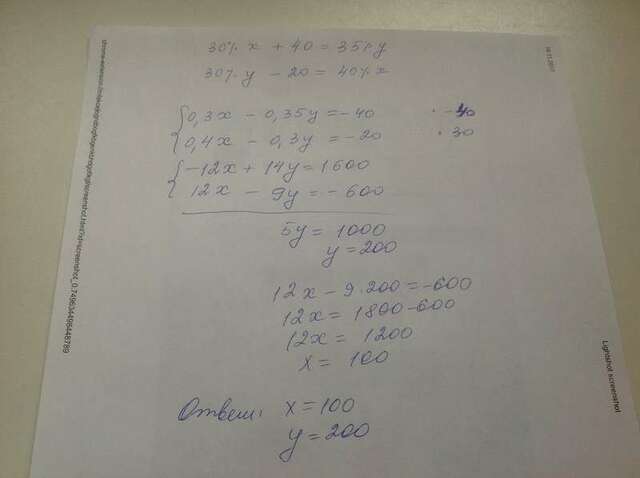 30% x + 40 = 35% y
30% y - 20 = 40% x
0,3x - 0,35y = -40 · -40
0,4x - 0,3y = -20 · 30
-12x + 14y = 1600
12x - 9y = -600
5y = 1000
y = 200
12x - 9·200 = -600
12x = 1800-600
12x = 1200
x = 100
Ответ: x = 100
y = 200
Lightshot screenshot